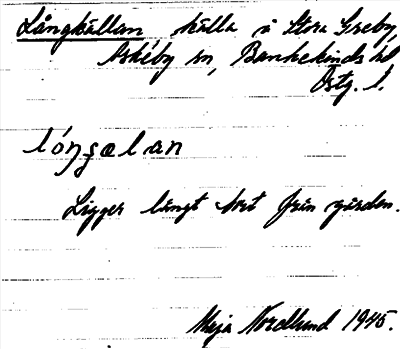 Långkällan, källa i Stora Greby,
Askeby sn, Bankekinds hd
Östg. l.
lóŋɕælan
Ligger långt bort från gården.
Maja Nordlund 1945.